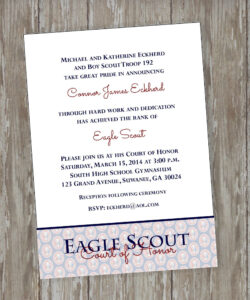 Michael and Katherine Eckherd
and Boy Scout Troop 192
take great pride in announcing
Connor James Eckherd
through hard work and dedication
has achieved the rank of
Eagle Scout
Please join us at his Court of Honor
Saturday, March 15, 2014 at 3:00 p.m.
South High School Gymnasium
123 Grand Street, Suwanee, GA 30024
Reception following ceremony
RSVP: eckherd@aol.com
Eagle Scout
Court of Honor